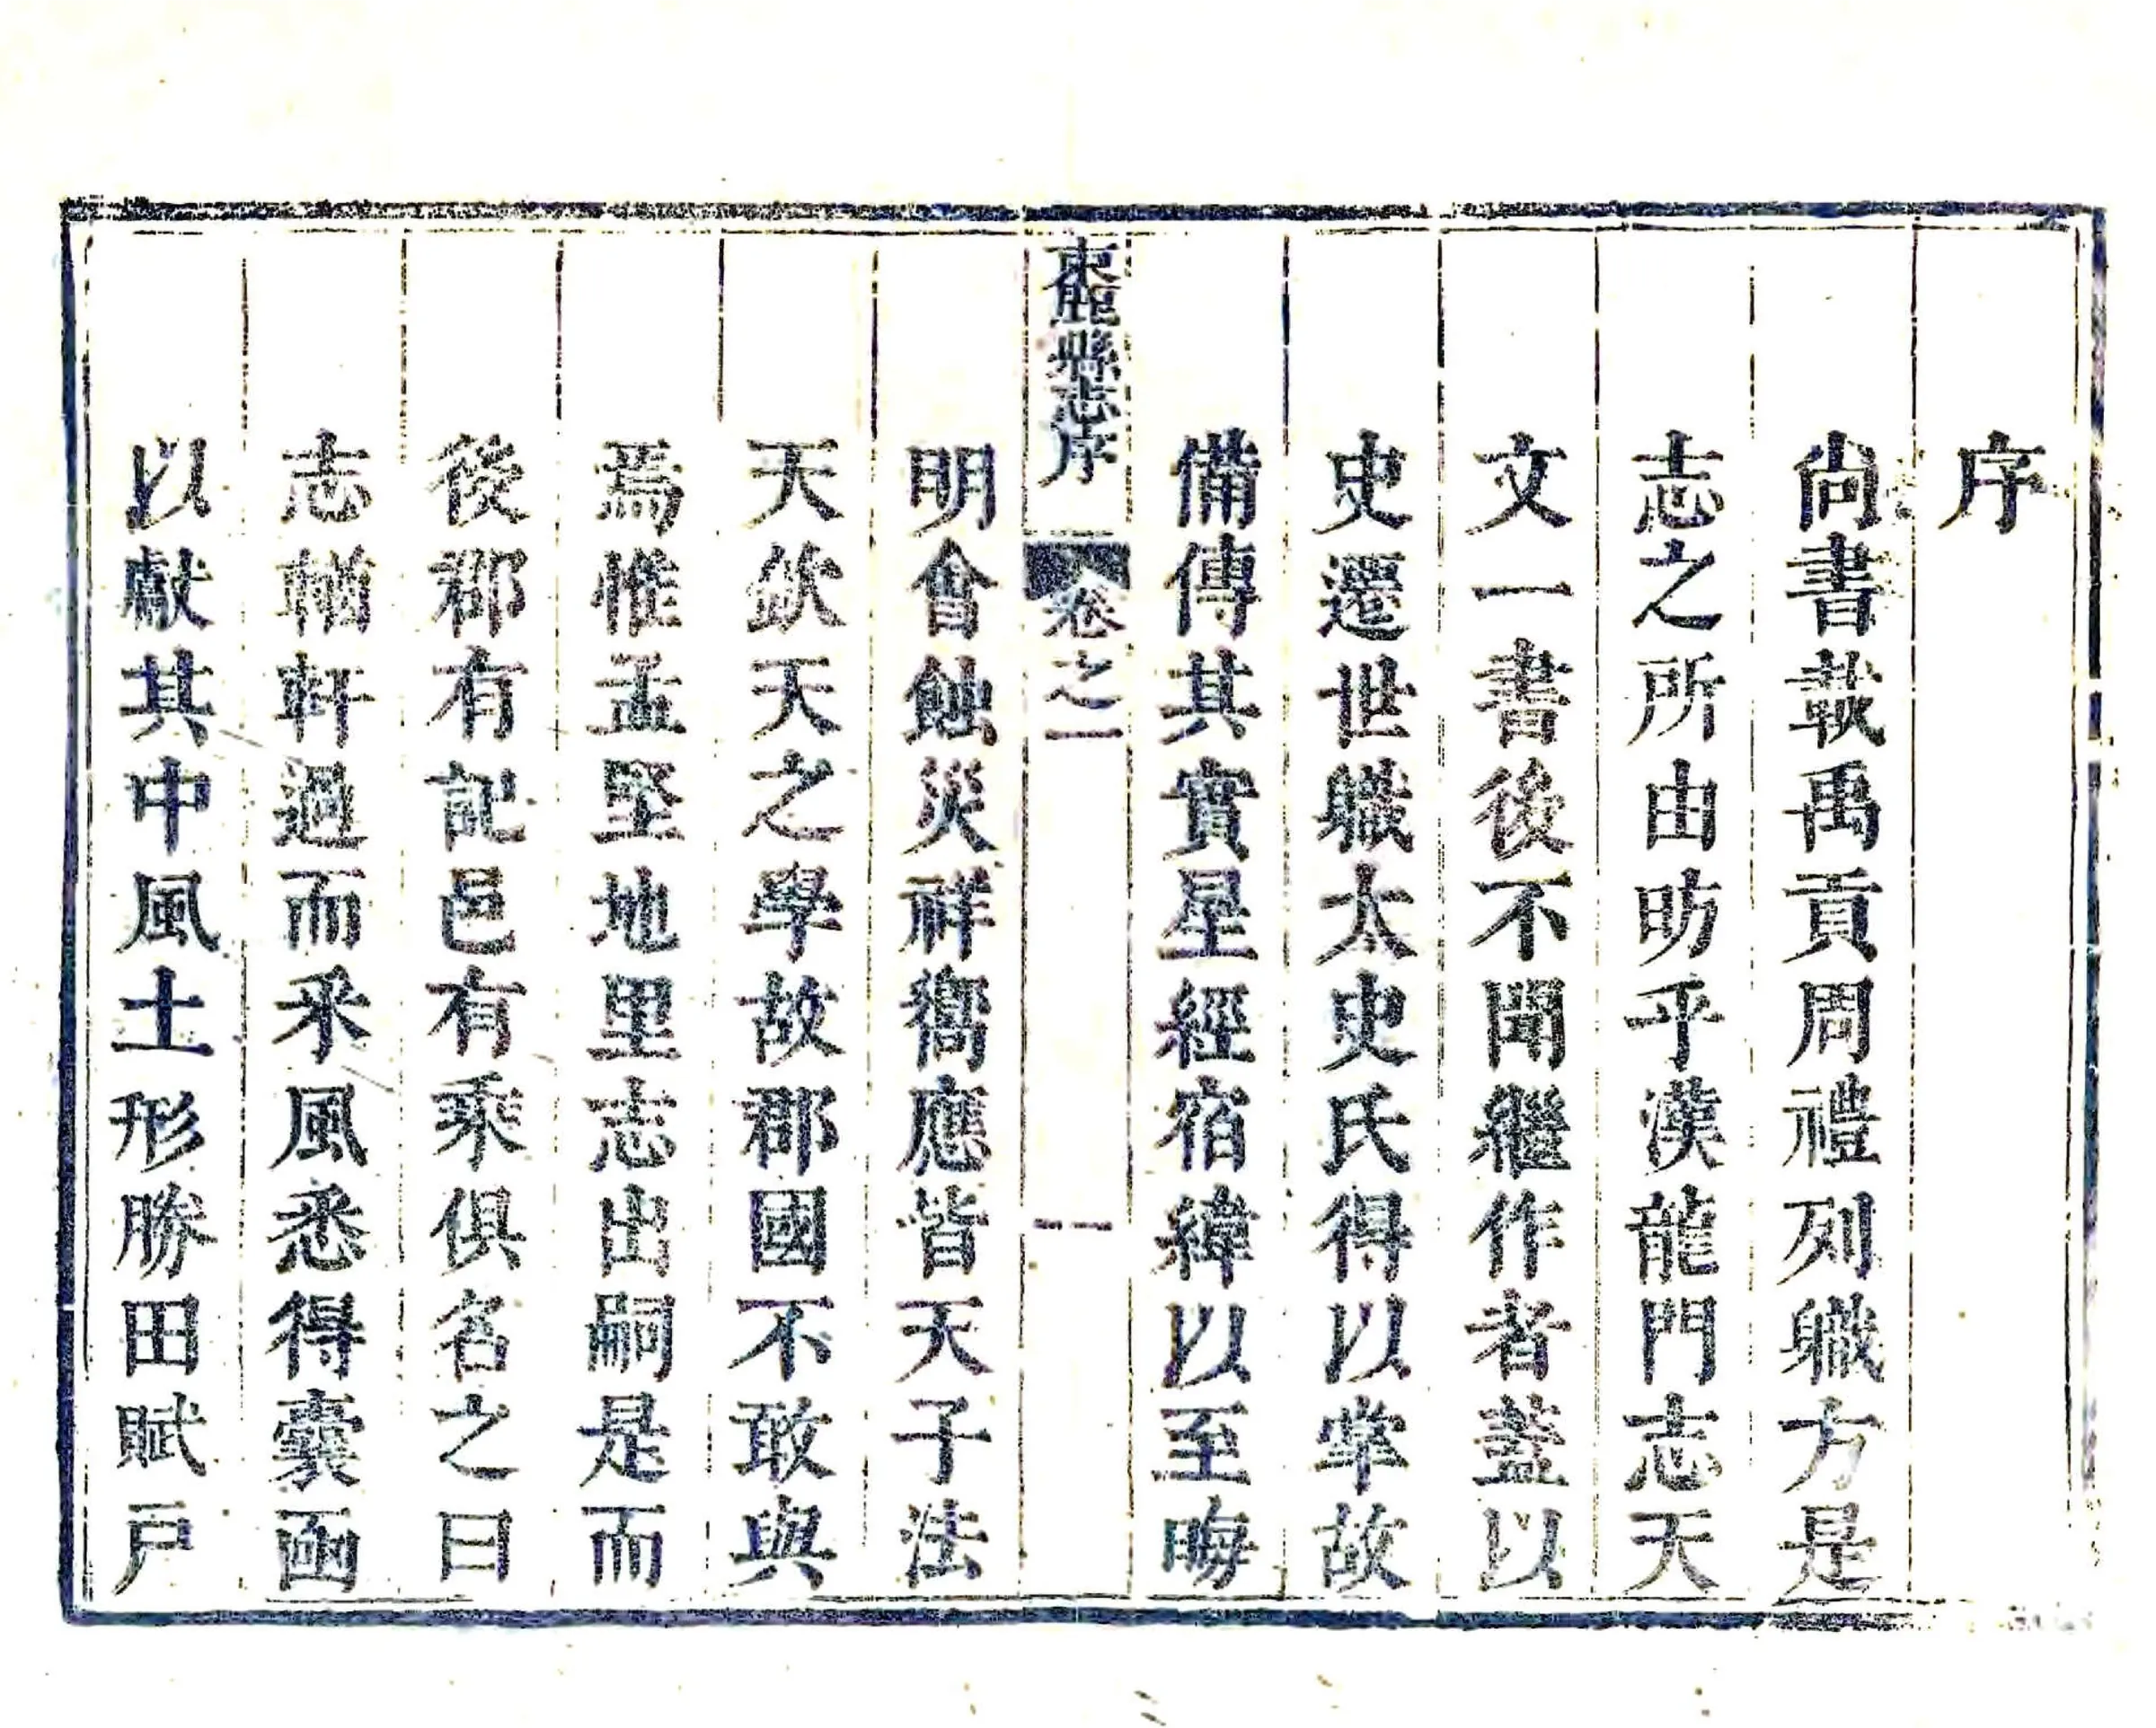 序
尚書載禹貢周禮列職方是
志之所由昉乎漢龍門志天
文一書後不聞繼作者蓋以
史遷世職太史氏得以掌故
備傳其實星經宿緯以至晦
束鹿縣志序 卷之一 一
明會蝕災祥嚮應皆天子法
天欽天之學故郡國不敢與
焉惟孟堅地里志出嗣是而
後郡有記邑有乘俱名之曰
志輶軒過而采風悉得囊函
以獻其中風土形勝田賦戸